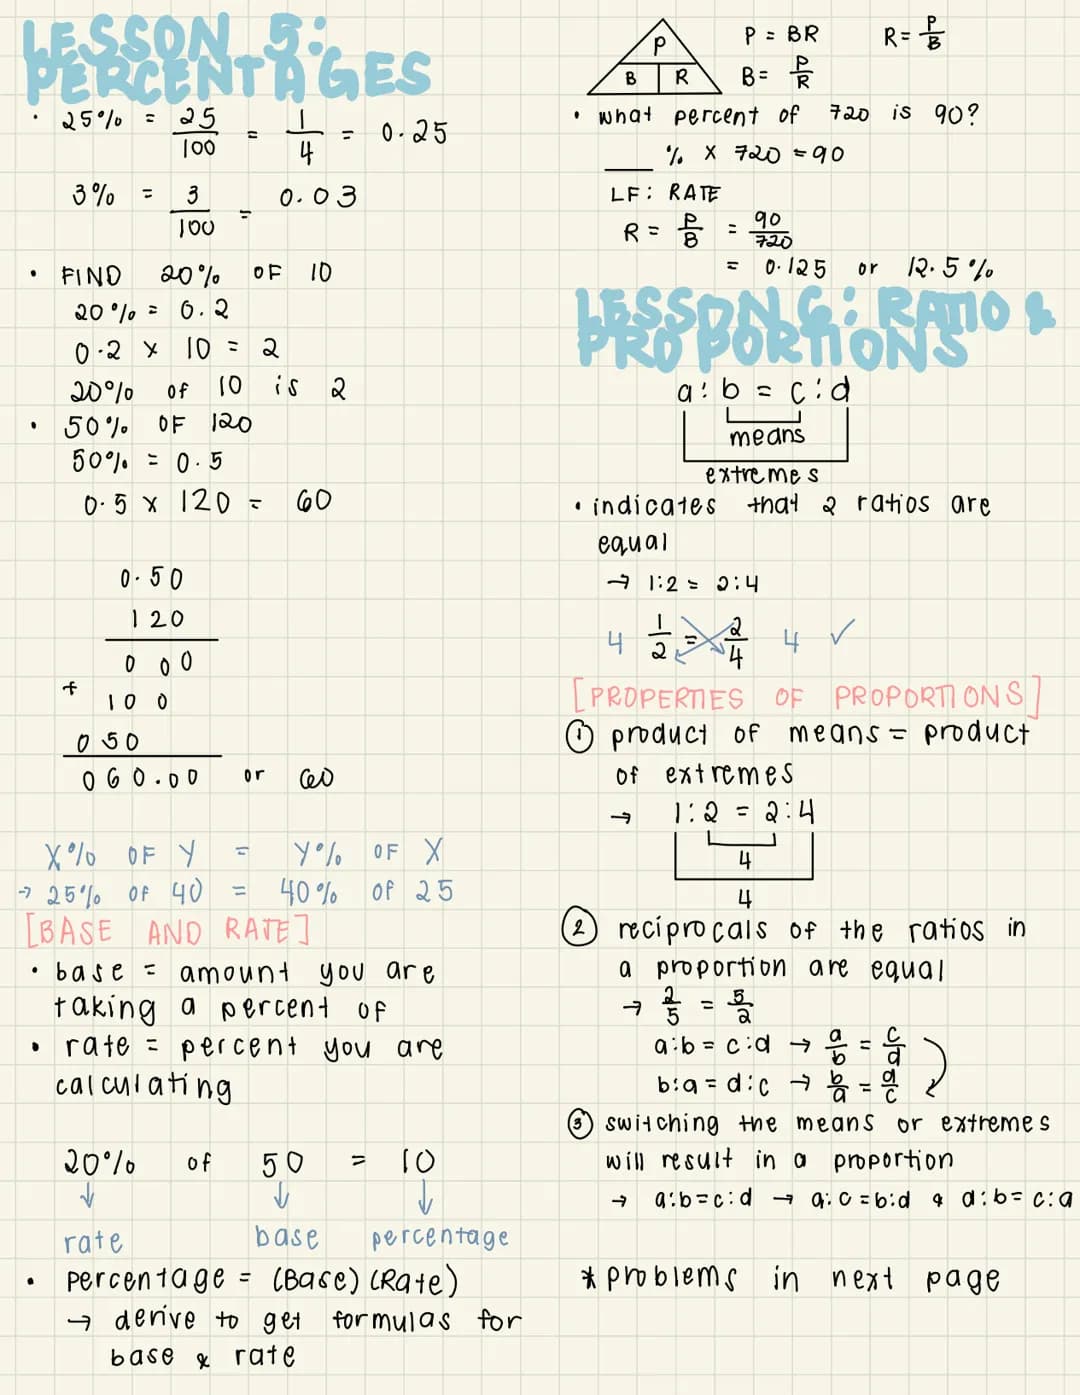 LESSON 5:
PERCENTAGES
• 25% = 25/100 = 1/4 = 0.25
3% = 3/100 = 0.03
• FIND 20% OF 10
20% = 0.2
0.2 x 10 = 2
20% of 10 is 2
• 50% OF 120
50% = 0.5
0.5 x 120 = 60
0.50
120
000
+ 100
050
060.00 or 60
X% OF Y = Y% OF X
→ 25% OF 40 = 40% OF 25
[BASE AND RATE]
• base = amount you are
taking a percent of
• rate = percent you are
calculating
20% of 50 = 10
↓ ↓ ↓
rate base percentage
• percentage = (Base)(Rate)
→ derive to get formulas for
base & rate
P
B R
P = BR R = P/B
B = P/R
• what percent of 720 is 90?
___ % x 720 = 90
LF: RATE
R = P/B = 90/720
= 0.125 or 12.5%
LESSON 6: RATIO &
PROPORTIONS
a:b = c:d
means
extremes
• indicates that 2 ratios are
equal
→ 1:2 = 2:4
4 1/2 = 2/4 4 ✓
[PROPERTIES OF PROPORTIONS]
① product of means = product
of extremes
→ 1:2 = 2:4
4
4
② reciprocals of the ratios in
a proportion are equal
→ 2/5 = 5/2
a:b = c:d → a/b = c/d
b:a = d:c → b/a = d/c
③ switching the means or extremes
will result in a proportion
→ a:b=c:d → a:c=b:d & d:b=c:a
*problems in next page